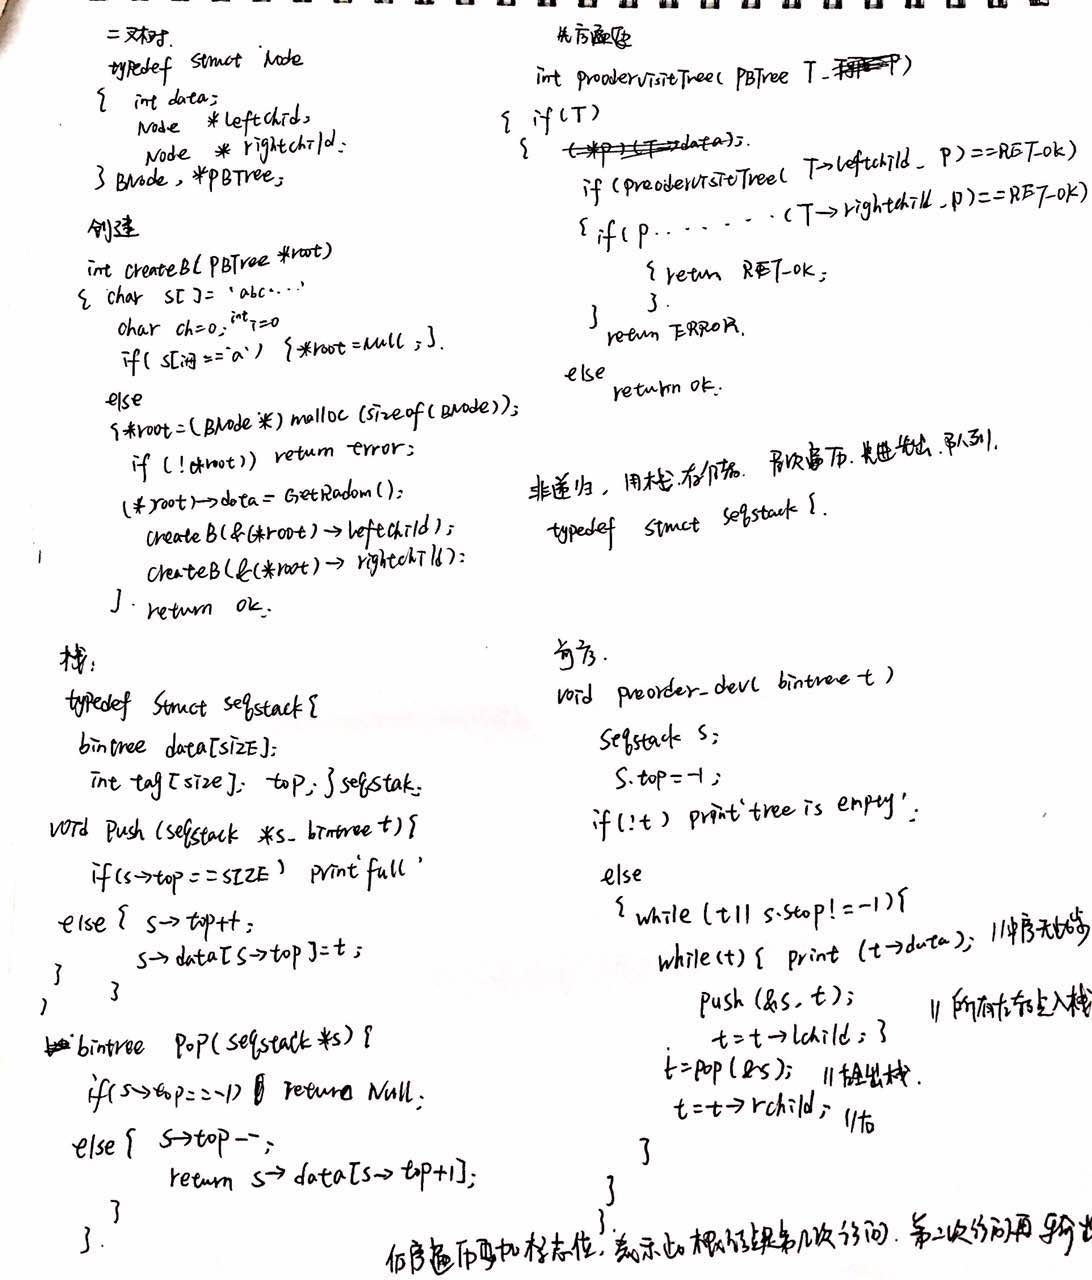 二叉树.
typedef struct Node
{ int data;
Node *leftchid;
Node * rightchild;
} BNode, *PBTree;
创建
int createB( PBTree *root)
{ char s[ ]= 'abc....'
char ch=0; int i=0
if( s[i]=='a') {*root=Null ;}.
else
{*root=(BNode*) malloc (sizeof(BNode));
if (!(*root)) return error;
(*root)->data = GetRadom();
createB(&(*root)->leftchild);
createB(&(*root)-> rightchild);
}. return ok.
栈:
typedef Struct seqstack {
bintree data[SIZE];
int tag[size]; top; } seqstak;
void push (seqstack *s, bintree t){
if(s->top==SIZE) print'full'
else { s-> top++;
s->data[s->top]=t;
}
}
bintree pop(seqstack *s) {
if(s->top==-1) return Null;
else { s->top--;
return s-> data[s-> top+1];
}
}.
先序遍历
int proodervisitTree( PBTree T,
{ if(T)
{
if (preodervisitTree( T->leftchild, P)==RET-ok)
{ if( p........(T->rightchild, p)==RET-ok)
{ return RET-ok;
}.
} return ERROR.
else
return ok.
非递归, 用栈. 层次遍历. 先进先出. 队列.
typedef struct seqstack {.
前序.
void preorder_dev( bintree t )
seqstack s;
s.top=-1;
if(!t) print'tree is empty';
else
{ while (t|| s.stop!=-1){
while(t) { print (t->data); //中序无此步
push (&s, t); //所有左节点入栈
t=t->lchild; }
t=pop(&s); //出栈.
t=t->rchild; //右
}
}
}.
后序遍历要加标志位, 表示此根结点是第几次访问. 第二次访问再输出